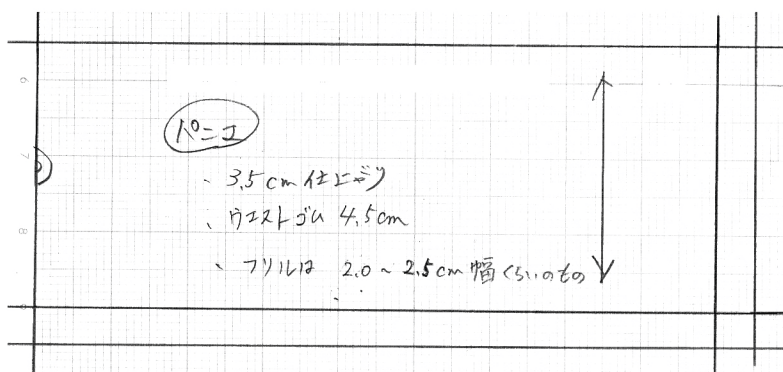 パニエ
、3.5cm 仕上がり
、ウエストゴム 4.5cm
、フリルは 2.0～2.5cm幅くらいのもの
6
7
8